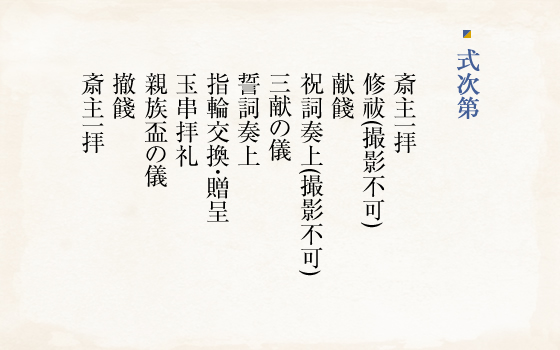 式次第
斎主一拝
修祓(撮影不可)
献饌
祝詞奏上(撮影不可)
三献の儀
誓詞奏上
指輪交換・贈呈
玉串拝礼
親族盃の儀
撤饌
斎主一拝